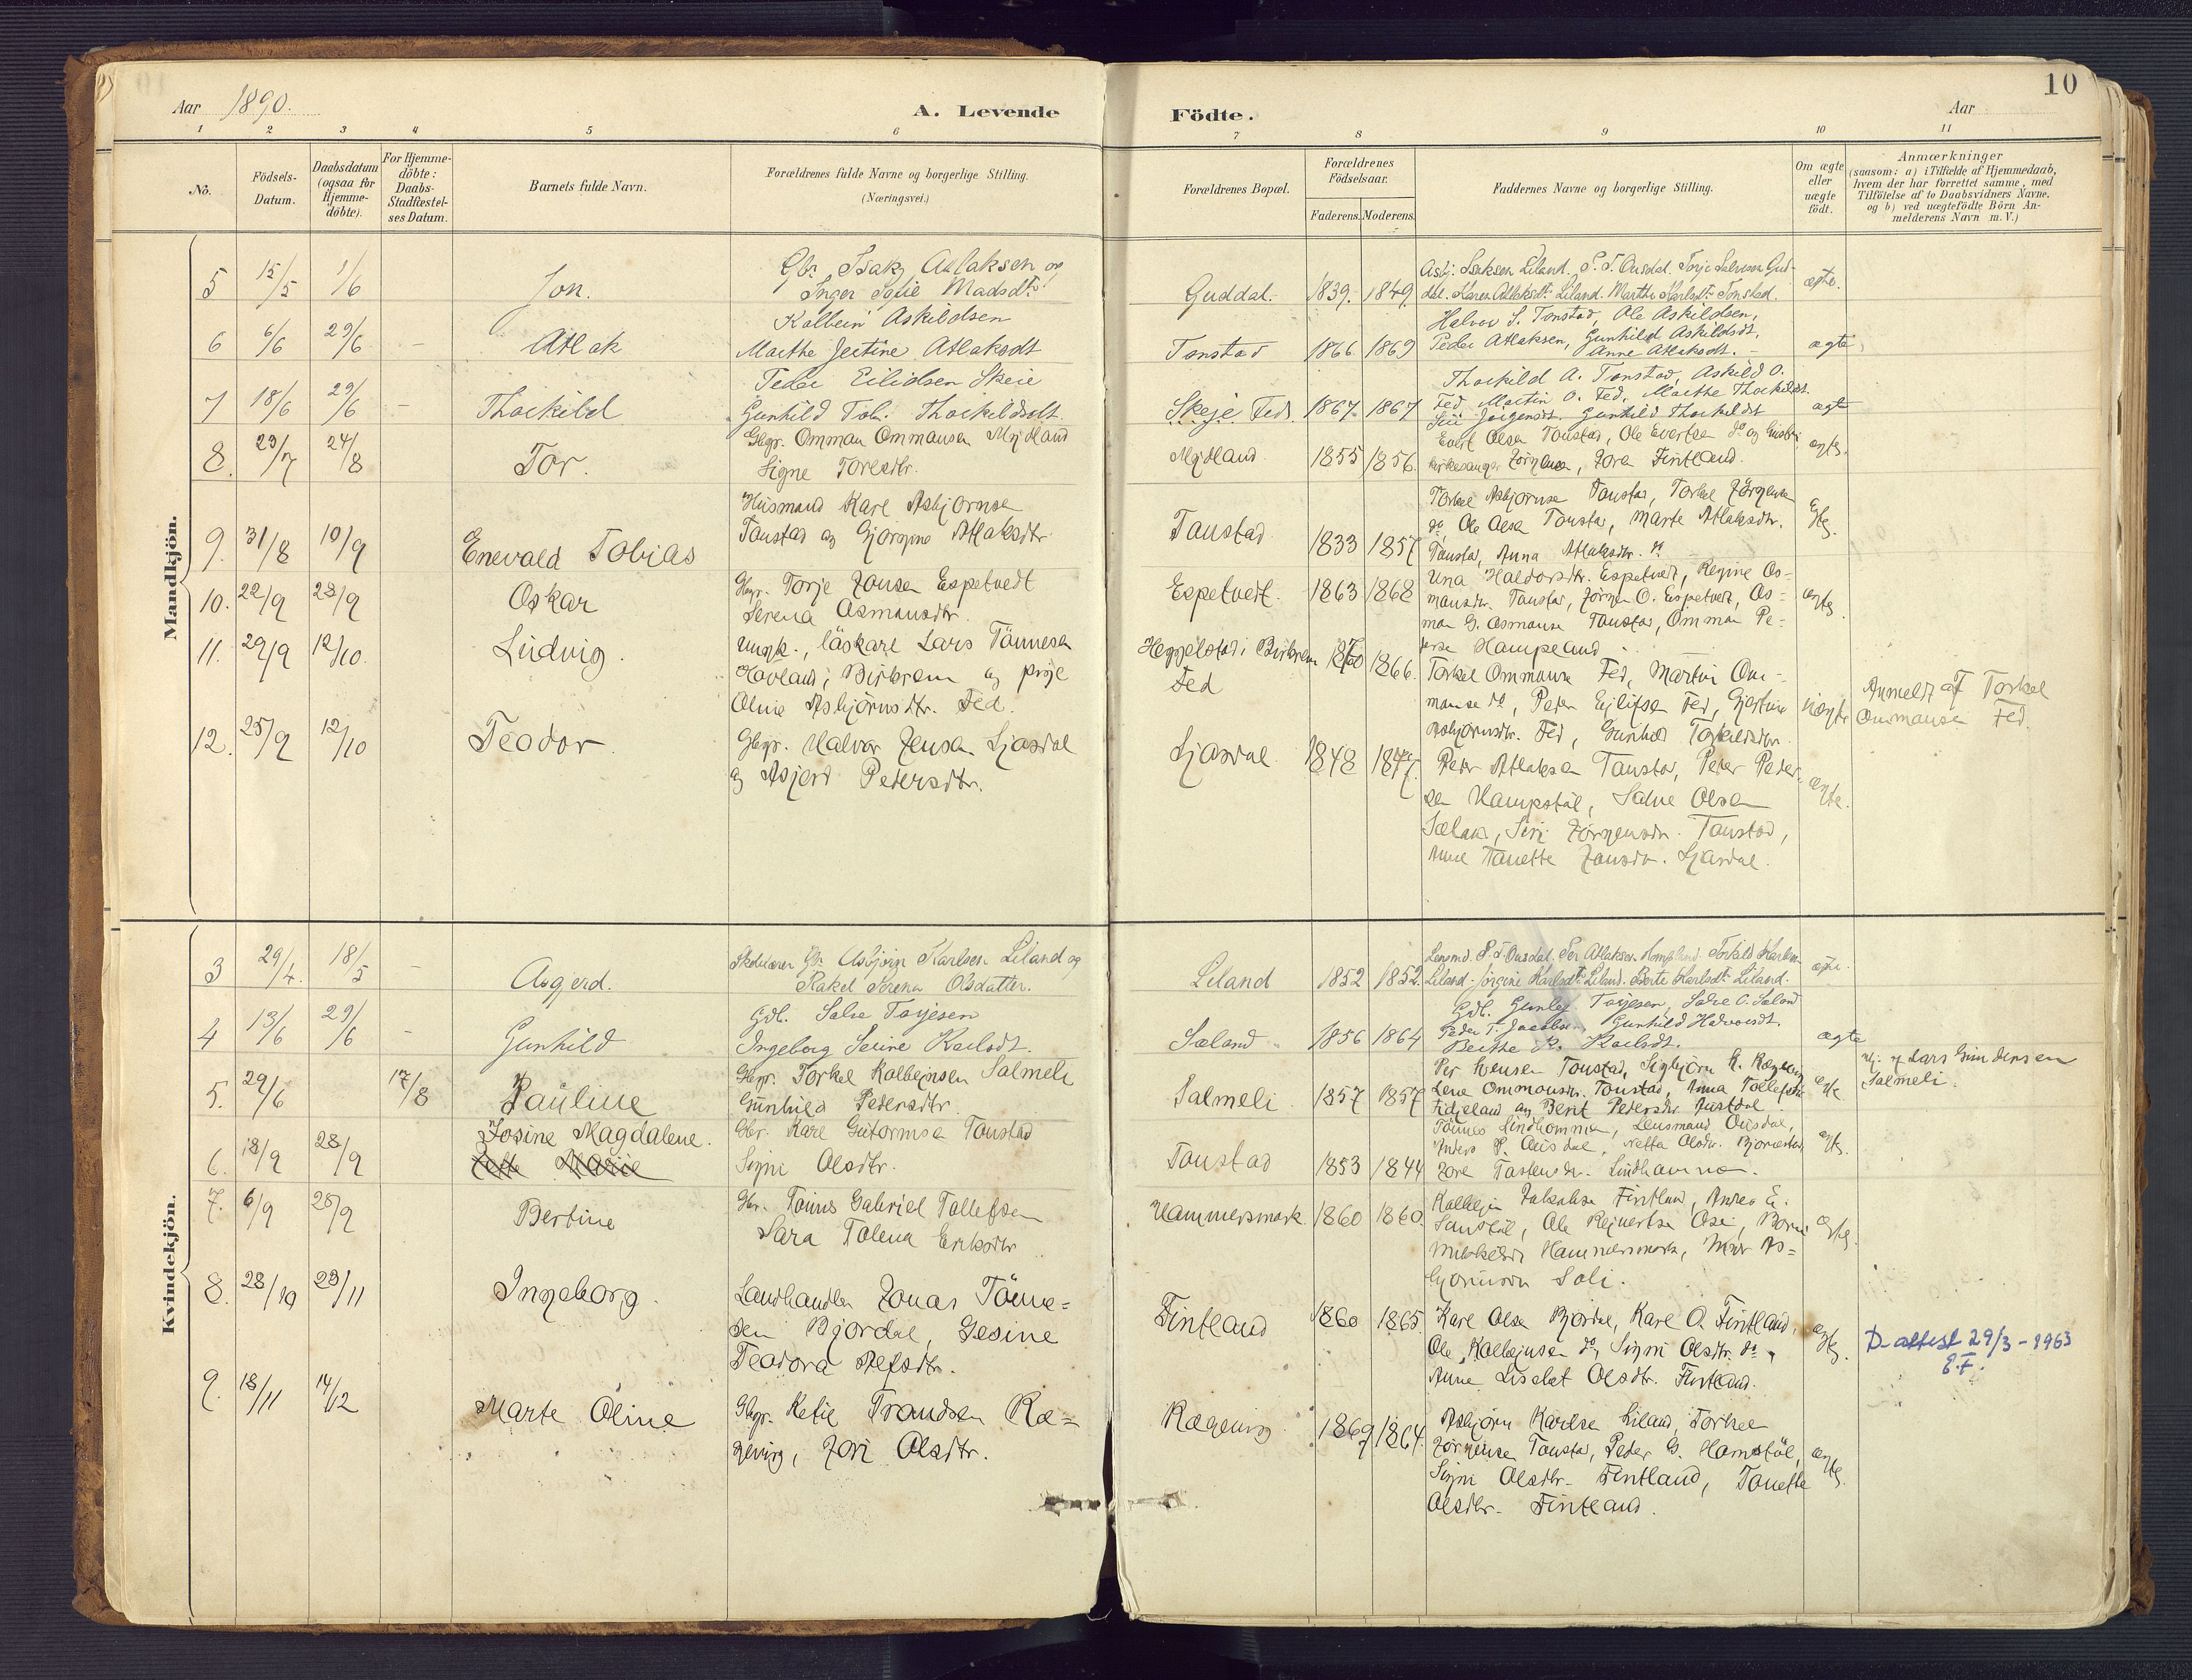 10
Aar 1890.
A. Levende Födte.
Aar
1 2 3 4 5 6 7 8 9 10 11
No.
Födsels-Datum.
Daabsdatum (ogsaa for Hjemme-döbte).
For Hjemme-döbte: Daabs-Stadfæstel-ses Datum.
Barnets fulde Navn.
Forældrenes fulde Navne og borgerlige Stilling. (Næringsvei.)
Forældrenes Bopæl.
Forældrenes Födselsaar.
Faderens. Moderens.
Faddernes Navne og borgerlige Stilling.
Om ægte eller uægte födt.
Anmærkninger
(saasom: a) i Tilfælde af Hjemmedaab,
hvem der har forrettet samme, med
Tilföielse af to Daabsvidners Navne,
og b) ved uægtefödte Börn An-
melderens Navn m. V.)
Mandkjön.
5 15/5 1/6 Jon.
Gbr. Isak Atlaksen og
Inger Sofie Madsdtr.
Guddal. 1839. 1849.
Asbj. Isaksen Liland. P. T. Ousdal. Torje Salvesen Gud-
dal. Karen Atlaksdtr Liland. Marthe Karlsdtr Tonstad.
ægte.
6 6/6 29/6 - Atlak
Kolbein Askildsen
Marthe Jestine Atlaksdt
Tonstad 1866 1869
Halvor S. Tonstad, Ole Askildsen,
Peder Atlaksen, Gunhild Askildsdt,
Anne Atlaksdt. -
ægte
7 18/6 29/6 - Thorkild
Peder Eilidsen Skeie
Gunhild Tob. Thorkildsdt
Skeje Fed. 1867 1867
Thorkild A. Tonstad, Askild O.
Fed, Martin O. Fed, Marthe Thorkildsdt.
Siri Jörgensdt. Gunhild Thorkildsdt
ægte
8. 23/7 24/8 Tor.
Gbgr. Omman Ommansen Mydland
Signe Toresdtr.
Mydland 1855 1856.
Evert Olsen Tonstad, Ole Evertsen do og
kirkesanger Jörgensen, Jore Fintland.
ægte.
9. 31/8 10/9 Enevald Tobias
Husmand Karl Asbjørnsen
Tonstad og Gjorgine Atlaksdtr.
Tonstad 1833 1857
Torkel Asbjørnsen Tonstad, Torkel Jörgensen
do, Ole Olsen Tonstad, Marte Atlaksdtr.
Tonstad, Anna Atlaksdtr. do
Egte.
10. 22/9 28/9 Oskar
Gbgr. Torje Jonsen Espetvedt
Serena Osmunsdtr.
Espetvedt. 1863 1868
Una Haldorsdtr. Espetvedt, Regine Os=
mansdtr. Tonstad, Jörgen O. Espetvedt, Os=
man G. Osmansen Tonstad, Omman Pe=
tersen Hompland
ægte
11. 29/9 12/10. Ludvig.
Ungk., läskarl Lars Tönnesen
Hovland i Birkrem og pige
Oline Asbjörnsdtr. Fed.
Heggelstad i Birkrem
Fed
1860 1866.
Torkel Ommansen Fed, Martin Om-
mansen do, Peter Ejlifsen Fed, Gjertine
Asbjörnsdtr. Fed, Gunhild Torkildsdtr.
uægte
Anmeldt af Torkel
Ommansen Fed.
12. 25/9 12/10 Teodor
Gbgr. Halvor Jensen Ljosdal
og Asjerd Petersdtr.
Ljosdal 1848 1847.
Peter Atlaksen Tonstad, Peter Peder-
sen Hampstøl, Salve Olsen
Sæland, Siri Jörgensdtr. Tonstad,
Anne Tonette Jonsdtr. Ljosdal.
ægte.
Kvindekjön.
3 29/4. 18/5 - Asgjerd.
Skolelærer Gbr. Asbjörn Karlsen Liland og
Rakel Serena Olsdatter.
Liland 1852 1852.
Lensmd. P. T. Ousdal. Per Atlaksen Hompland. Torkild Karlsen
Liland. Jörgine Karlsdtr Liland. Berte Karlsdtr Liland.
ægte.
4 13/6 29/6 - Gunhild
Gdb. Salve Torjesen
Ingeborg Serine Karlsdt.
Sæland 1856 1864
Gdb. Gunlef Torjesen, Salve O. Sæland
Peder T. Jacobsen, Gunhild Halvorsdt.
Berthe K. Karlsdt.
ægte
5. 29/6 17/8 Pauline
Gbgr. Torkel Kolbejnsen Salmeli
Gunhild Pedersdtr.
Salmeli 1857 1857
Per Hensen Tonstad, Sigbjörn K. Rægevig
Lene Ommonsdtr. Tonstad, Anna Tollefsdtr.
Fidjeland og Berit Pedersdtr Austdal
Hj. af Lars Gundersen
Salmeli.
6. 18/9 28/9 Josine Magdalene.
Gbr. Karl Gutormsen Tonstad
Signi Olsdtr.
Tonstad 1853 1844
Tönnes Lindhommen, Lensmand Ousdal,
Anders P. Ousdal, Netta Olsdtr. Bjornestad,
Jore Tostensdtr. Lindhommen.
ægte.
7. 6/9 28/9 Bertine
Gbr. Tönnes Gabriel Tollefsen
Sara Tolena Eriksdtr
Hammersmark 1860 1860.
Kolbejn Jakobsen Fintland, Andreas E.
Ole Rejnertsen Osen,
Hammersmark,
Soli.
ægte.
8. 28/10 23/11 Ingeborg.
Landhandler Jonas Tönne=
sen Bjordal, Gesine
Teodora
Fintland 1860 1865.
Karl Olsen Bjordal, Karl O. Fintland,
Ole Kolbejnsen do, Signi Olsdtr. do,
Anne Lisabet Olsdtr. Fintland.
ægte.
D-attest 29/3-1963
E.F.
9. 18/11 14/12 Marte Oline
Gbgr. Ketil Trondsen Ræ=
gevig, Jori Olsdtr.
Rægevig 1869 1864.
Asbjörn Karlsen Liland, Torkel
Jörgensen Tonstad, Peder G. Homstöl,
Signi Olsdtr. Fintland, Tonette
Olsdtr. Fintland.
ægte.